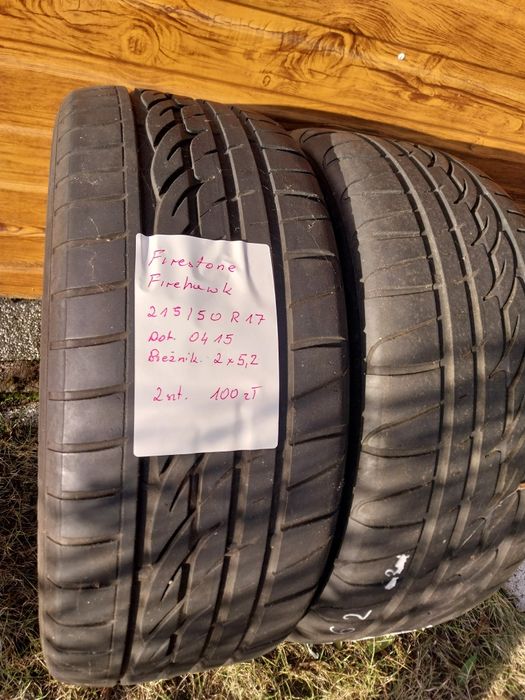 Firestone
Firehawk
215/50 R 17
Dot. 0415
Bieżnik. 2x5,2
2 szt. 100 zł
62